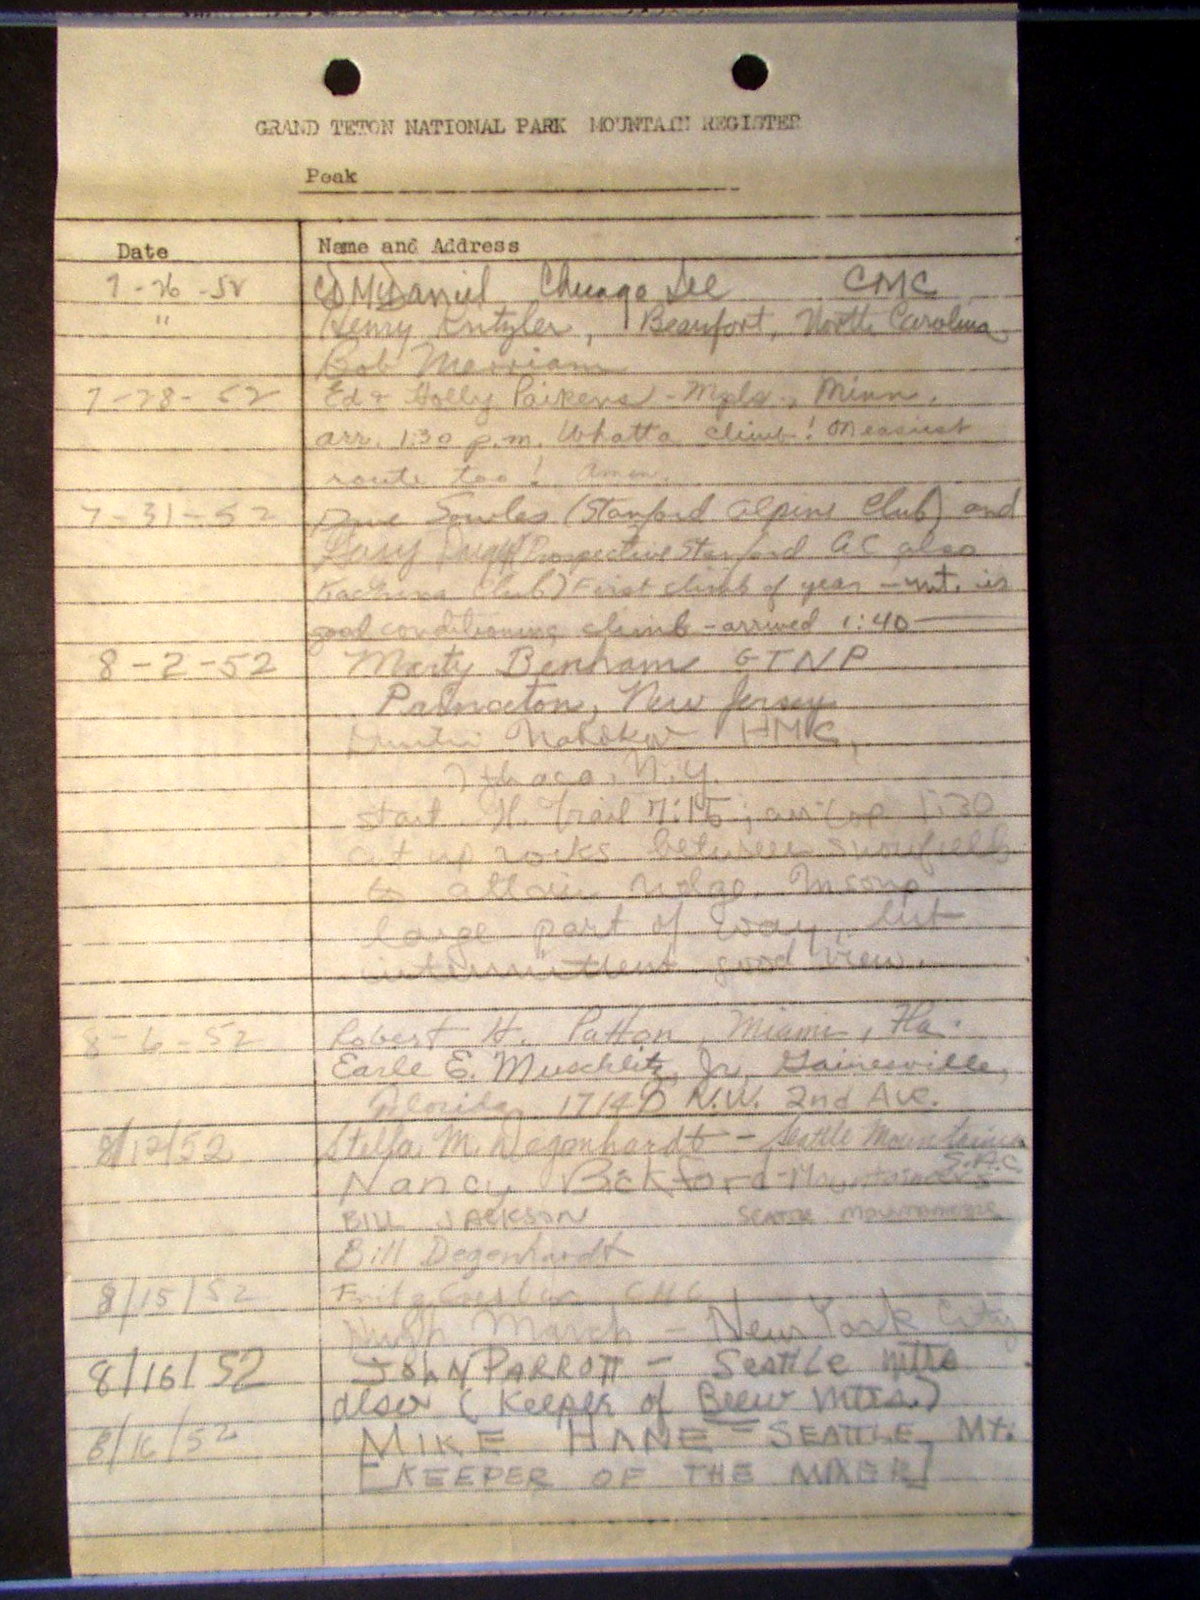 GRAND TETON NATIONAL PARK MOUNTAIN REGISTER
Peak
Date Name and Address
7-26-52 McDaniel Chicago Ill CMC
" Henry Kritzler, Beaufort, North Carolina
Bob Merriam
7-28-52 Ed & Holly - Mpls., Minn.
arr. 1:30 p.m. Whatta climb! On easiest
route too! Amen.
7-31-52 Dave Sowles (Stanford Alpine Club) and
Gary (Prospective Stanford AC also
Kachina Club) First climb of year - mt. is
good conditioning climb - arrived 1:40
8-2-52 Marty Benham GTNP
Princeton, New Jersey
Dmitri Nabokov HMC,
Ithaca, N.Y.
start N. Trail 7:15; arr top 1:30
up rocks between snowfields
to attain ridge. In song
large part of way, but
intermittent good view.
8-6-52 Robert H. Patton, Miami, Fla.
Earle E. Muschlitz, Jr. Gainesville,
Florida, 1714 N.W. 2nd Ave.
8/12/52 Stella M. Degenhardt - Seattle Mountaineers
S.A.C.
Nancy Bickford - Mountaineers
BILL JACKSON SEATTLE MOUNTAINEERS
Bill Degenhardt
8/15/52 Fritz CMC
Hugh March - New York City
8/16/52 JOHN PARROTT - SEATTLE mtrs
also (Keeper of Beew mtrs.)
8/16/52 MIKE HANE - SEATTLE Mt.
[KEEPER OF THE MIXER]